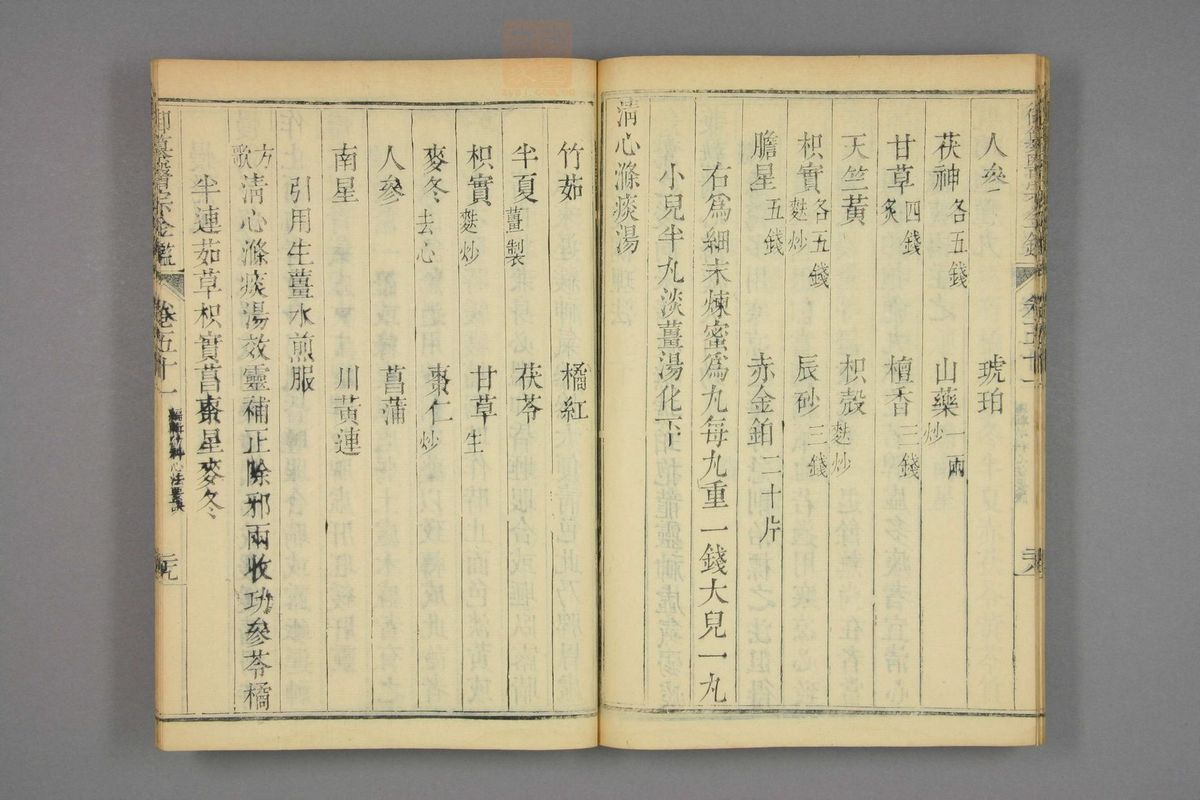 人參　琥珀
茯神各五錢　山藥一兩炒
甘草四錢炙　檀香三錢
天竺黃　枳殼麩炒
枳實各五錢麩炒　辰砂三錢
膽星五錢　赤金鉑二十片
右爲細末煉蜜爲丸每丸重一錢大兒一丸
小兒半丸淡薑湯化下
清心滌痰湯
竹茹　橘紅
半夏薑製　茯苓
枳實麩炒　甘草生
麥冬去心　棗仁炒
人參　菖蒲
南星　川黃連
引用生薑水煎服
方歌清心滌痰湯效靈補正除邪兩收功參苓橘
半連茹草枳實菖棗星麥冬
御纂醫宗金鑑　卷五十一　編輯幼科心法要訣　二九